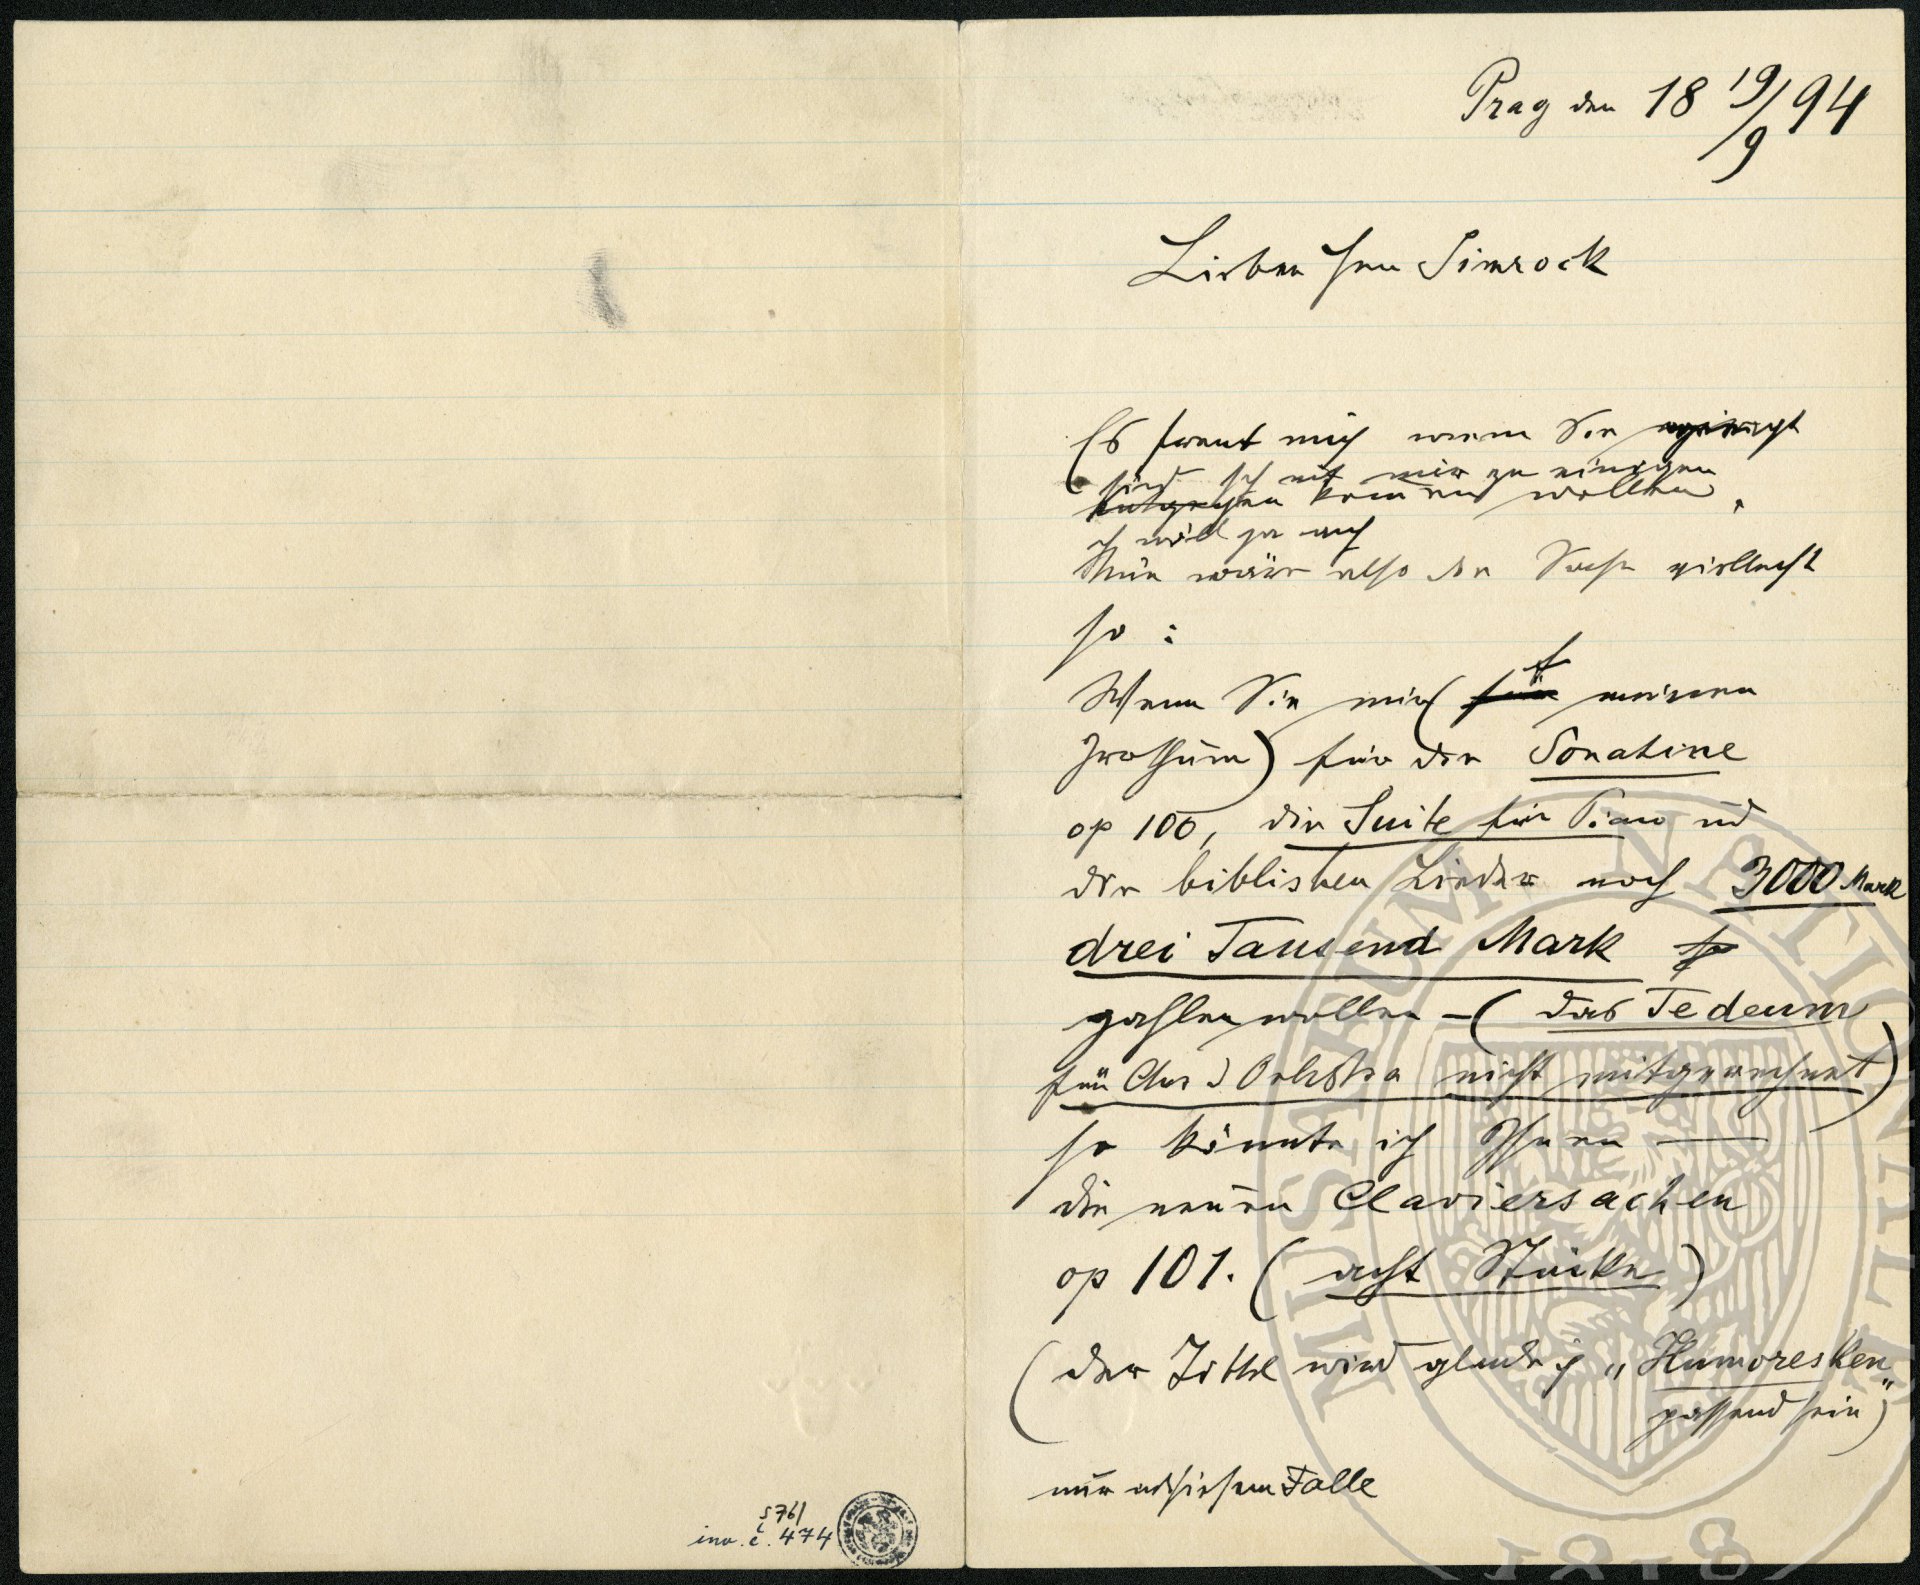 S 76/
inv. č. 474
Prag den 18 19/9 94
Lieber Herr Simrock
Es freut mich wenn Sie
sich mit mir zu einigen
kommen wollen.
ich will ja auch
Nun wäre also die Sache vielleicht
so :
Wenn Sie mir ( für meinen
Irrthum) für die Sonatine
op 100, die Suite für Piano und
die biblischen Lieder noch 3000 Mark
drei Tausend Mark
zahlen wollen – ( das Tedeum
für Chor Orchestra nicht mitgerechnet)
so könnte ich Ihnen —
die neuen Claviersachen
op 101. ( acht Stücke )
( der Tittel wird glaube ich „Humoresken"
passend sein )
Falle
MUSAEUM
NATIONALE
1818